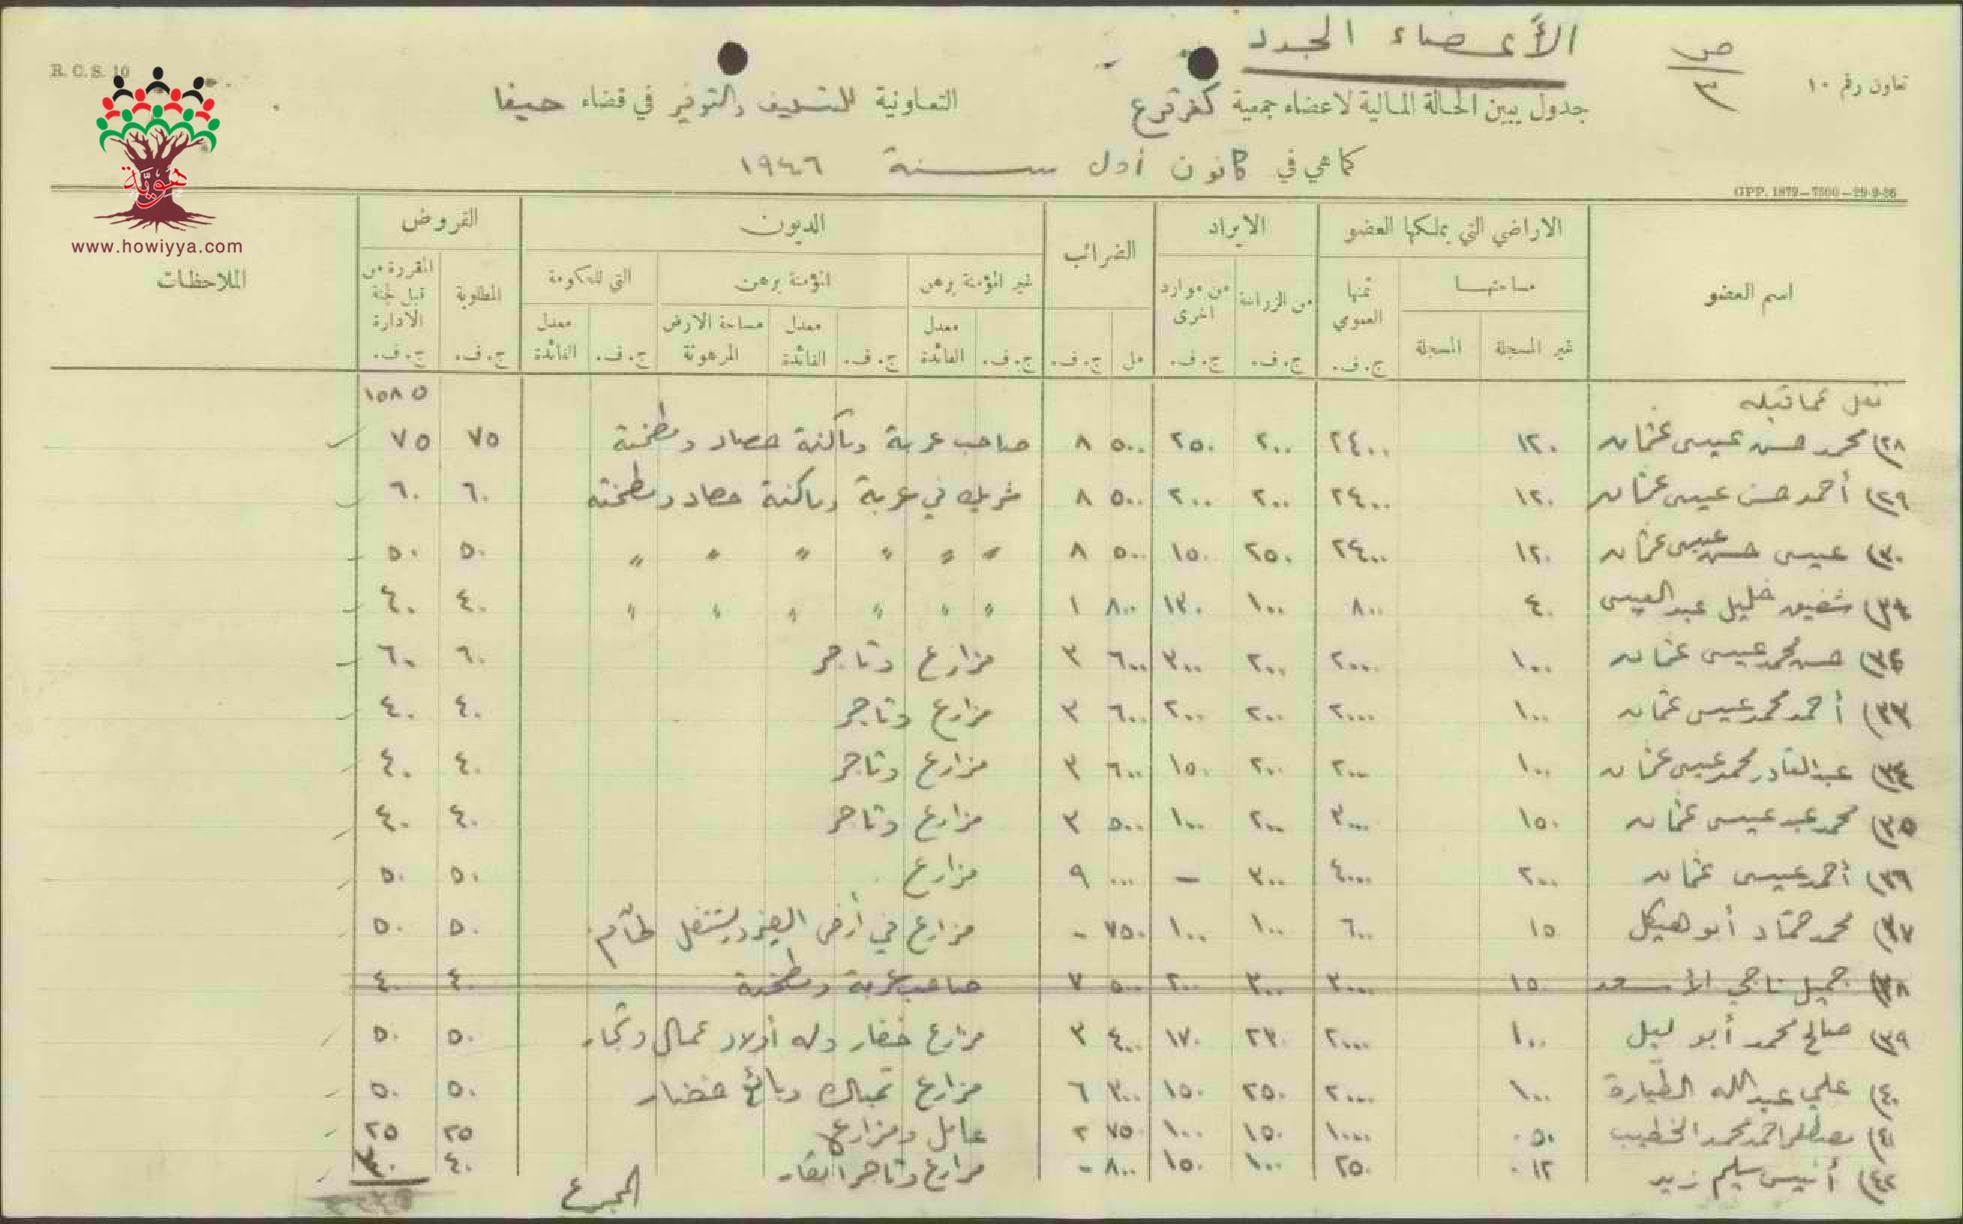 الأعضاء الجدد
ص/٣
تعاون رقم ١٠
R. C. S. 10
جدول يبين الحالة المالية لاعضاء جمعية كفر قرع التعاونية للتسليف والتوفير في قضاء حيفا
كما هي في كانون أول سنة ١٩٤٦
GPP. 1879—7500—29-9-36
هوية
www.howiyya.com
اسم العضو
الاراضي التي يملكها العضو
الايراد
الضرائب
الديون
القروض
الملاحظات
مساحتها
ثمنها العمومي
من الزراعة
من موارد اخرى
غير المؤمنة برهن
المؤمنة برهن
التي للحكومة
المطلوبة
المقررة من قبل لجنة الادارة
غير المسجلة
المسجلة
ج.ف.
ج.ف.
ج.ف.
مل
ج.ف.
ج.ف.
معدل الفائدة
ج.ف.
معدل الفائدة
مساحة الارض المرهونة
ج.ف.
معدل الفائدة
ج.ف.
ج.ف.
نقل عما قبله ١٥٨٥
٢٨) محمد حسن عيسى عثمان ١٢٠ ٢٤٠٠ ٢٠٠ ٢٥٠ ٥٠٠ ٨ صاحب عربة وماكنة حصاد ومطحنة ٧٥ ٧٥
٢٩) أحمد حسن عيسى عثمان ١٢٠ ٢٤٠٠ ٢٠٠ ٢٠٠ ٥٠٠ ٨ شريك في عربة وماكنة حصاد ومطحنة ٦٠ ٦٠
٣٠) عيسى حسن عيسى عثمان ١٢٠ ٢٤٠٠ ٢٥٠ ١٥٠ ٥٠٠ ٨ " " " " " " ٥٠ ٥٠
٣١) شفيق خليل عبد العيسى ٤٠ ٨٠٠ ١٠٠ ١٣٠ ٨٠٠ ١ " " " " " " ٤٠ ٤٠
٣٢) حسن محمد عيسى عثمان ١٠٠ ٢٠٠٠ ٢٠٠ ٣٠٠ ٦٠٠ ٣ مزارع وتاجر ٦٠ ٦٠
٣٣) أحمد محمد عيسى عثمان ١٠٠ ٢٠٠٠ ٢٠٠ ٢٠٠ ٦٠٠ ٣ مزارع وتاجر ٤٠ ٤٠
٣٤) عبد القادر محمد عيسى عثمان ١٠٠ ٢٠٠٠ ٢٠٠ ١٥٠ ٦٠٠ ٣ مزارع وتاجر ٤٠ ٤٠
٣٥) محمد عبد عيسى عثمان ١٥٠ ٣٠٠٠ ٢٠٠ ١٠٠ ٥٠٠ ٣ مزارع وتاجر ٤٠ ٤٠
٣٦) أحمد عيسى عثمان ٢٠٠ ٤٠٠٠ ٣٠٠ — ٠٠٠ ٩ مزارع ٥٠ ٥٠
٣٧) محمد حماد أبو هيكل ١٥ ٦٠٠ ١٠٠ ١٠٠ ٧٥٠ - مزارع في أرض الغير ويشتغل لحّام ٥٠ ٥٠
٣٨) جميل ناجي الأسعد ١٥٠ ٣٠٠٠ ٣٠٠ ٢٠٠ ٥٠٠ ٧ صاحب عربة ومطحنة ٤٠ ٤٠
٣٩) صالح محمد أبو ليل ١٠٠ ٢٠٠٠ ٢٣٠ ١٧٠ ٤٠٠ ٣ مزارع خضار وله أولاد عمال وتجار ٥٠ ٥٠
٤٠) علي عبد الله الطيارة ١٠٠ ٢٠٠٠ ٢٥٠ ١٥٠ ٣٠٠ ٦ مزارع تمباك وبائع خضار ٥٠ ٥٠
٤١) مصطفى احمد محمد الخطيب ٥٠ ١٠٠٠ ١٥٠ ١٠٠ ٧٥٠ ٢ عامل ومزارع ٢٥ ٢٥
٤٢) أنيس سليم زيد ١٢ ٢٥٠ ١٠٠ ١٥٠ ٨٠٠ - مزارع وتاجر أبقار ٤٠
المجموع